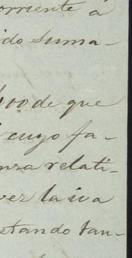 orriente a
ido suma-
de que
cuyo fa-
relati-
ver la iva
stando tan-